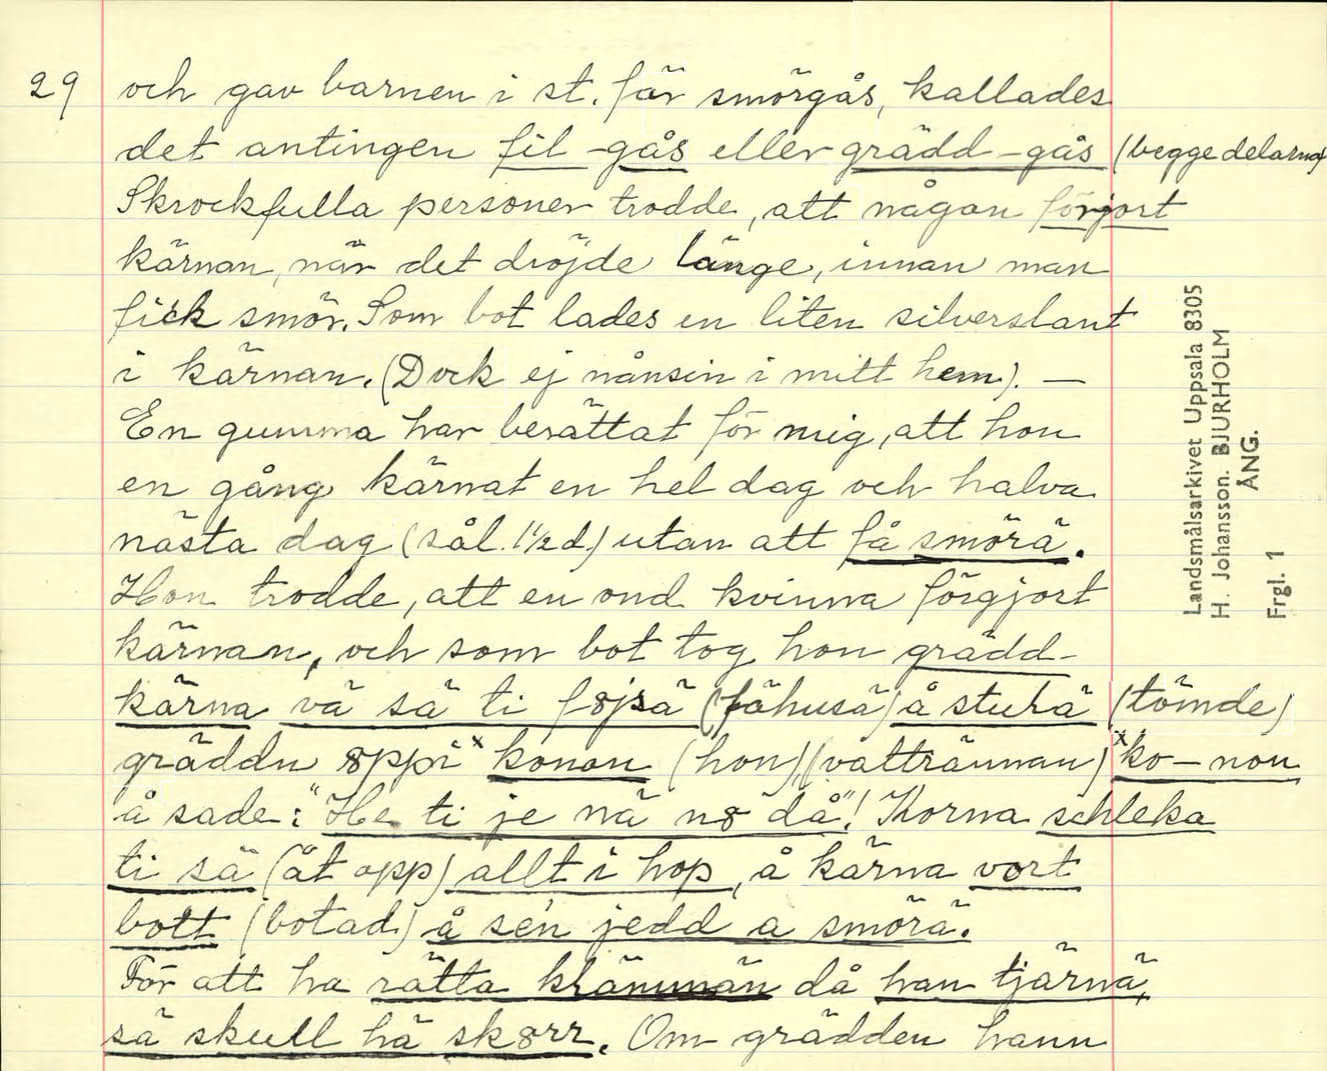 29 och gav barnen i st. för smörgås, kallades
det antingen fil-gås eller grädd-gås (begge delarna)
Skrockfulla personer trodde, att någon förgjort
kärnan, när det dröjde länge, innan man
fick smör. Som bot lades en liten silverslant
i kärnan. (Dock ej nånsin i mitt hem). —
En gumma har berättat för mig, att hon
en gång kärnat en hel dag och halva
nästa dag (sål. 1½ d) utan att få smörä.
Hon trodde, att en ond kvinna förgjort
kärnan, och som bot tog hon grädd-
kärna vä sä ti föjsä (fähusä) å sturtä (tömde)
gräddn oppi x konon (hon), (vattrännan) x ko-non
å sade: "He ti je nä no då"! Korna schleka
ti sä (åt opp) allt i hop, å kärna vort
bott (botad) å sén jedd a smörä.
För att ha rätta krämmän då han tjärnä,
sä skull hä skörr. Om grädden hann
Landsmålsarkivet Uppsala 8305
H. Johansson. BJURHOLM
ÅNG.
Frgl. 1